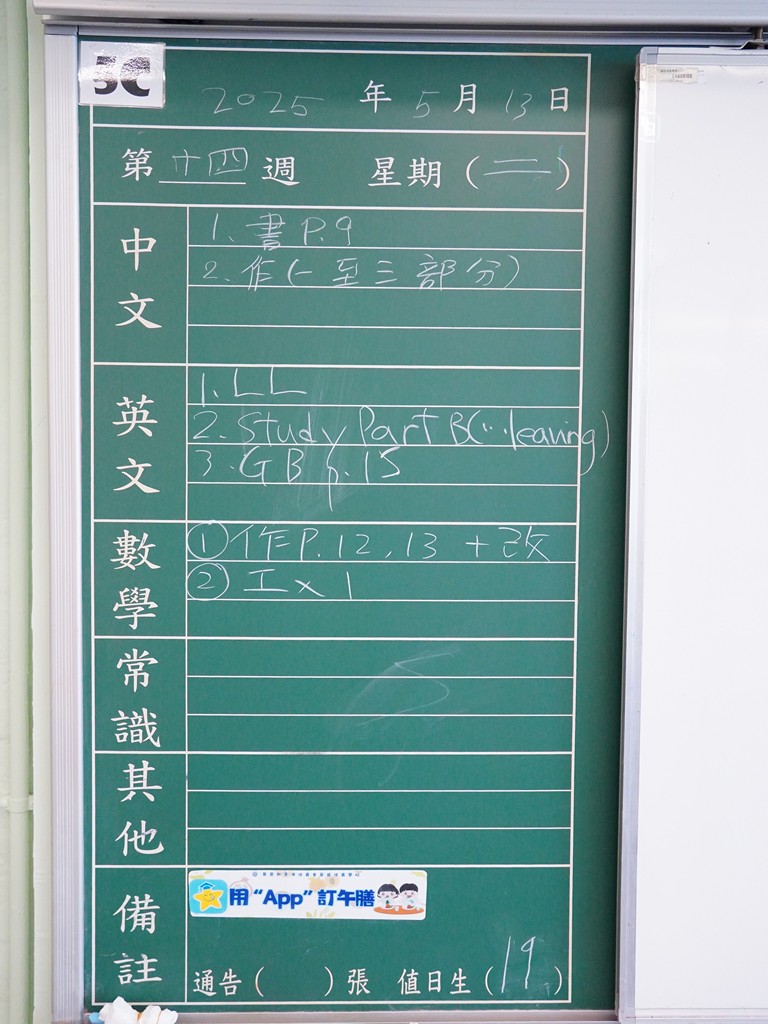 5C
2025 年 5 月 13 日
第 十四 週 星期 (二)
中文
1. 書 P.9
2. 作 (一至三部分)
英文
1. LL
2. Study Part B(...leaving)
3. GB p.15
數學
① 作 P.12, 13 + 改
② 工 x 1
常識
其他
備註
用 "App" 訂午膳
通告 ( ) 張 值日生 (19)